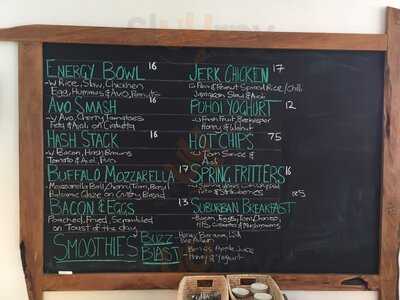 ENERGY BOWL 16
w Rice, Slaw, Chicken
Egg, Hummus & Avo, Peanuts
AVO SMASH 16
w Avo, Cherry Tomatoes
Feta & on Ciabatta
HASH STACK 16
w Bacon, Hash Browns
Tomato & Aioli
BUFFALO MOZZARELLA 17
Mozzarella Ball, Cherry Tom, Basil
Balsamic Glaze on Crusty Bread
BACON & EGGS 13
Poached, Fried, Scrambled
on Toast of the day
SMOOTHIES BUZZ
Honey, Banana,
BLAST
Berries, Apple Juice
Honey & Yoghurt
JERK CHICKEN 17
Peanut Spiced Rice
Jamaican Slaw & Aioli
PUHOI YOGHURT 12
w Fresh Fruit, Beekeeper
Honey & Walnut
HOT CHIPS 7.5
Tom Sauce &
Aioli
SPRING FRITTERS 16
SUBURBAN BREAKFAST
Bacon, Eggs, Tom, Chorizo,
H/B, & Mushrooms